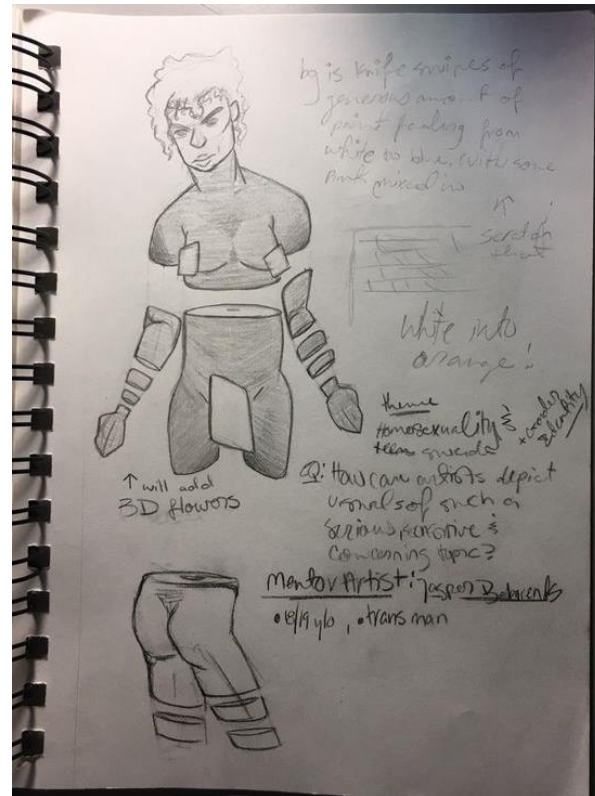 bg is knife swipes of
generous amount of
paint fading from
white to blue. with some
pink mixed in
scratch
that
white into
orange!
theme
Homosexuality &
+ Gender
Identity
teen suicide
↑ will add
3D flowers
Q: How can artists depict
visuals of such a
serious, sensitive &
concerning topic?
Mentor Artist: Jasper
• 18/19 y/o, • trans man